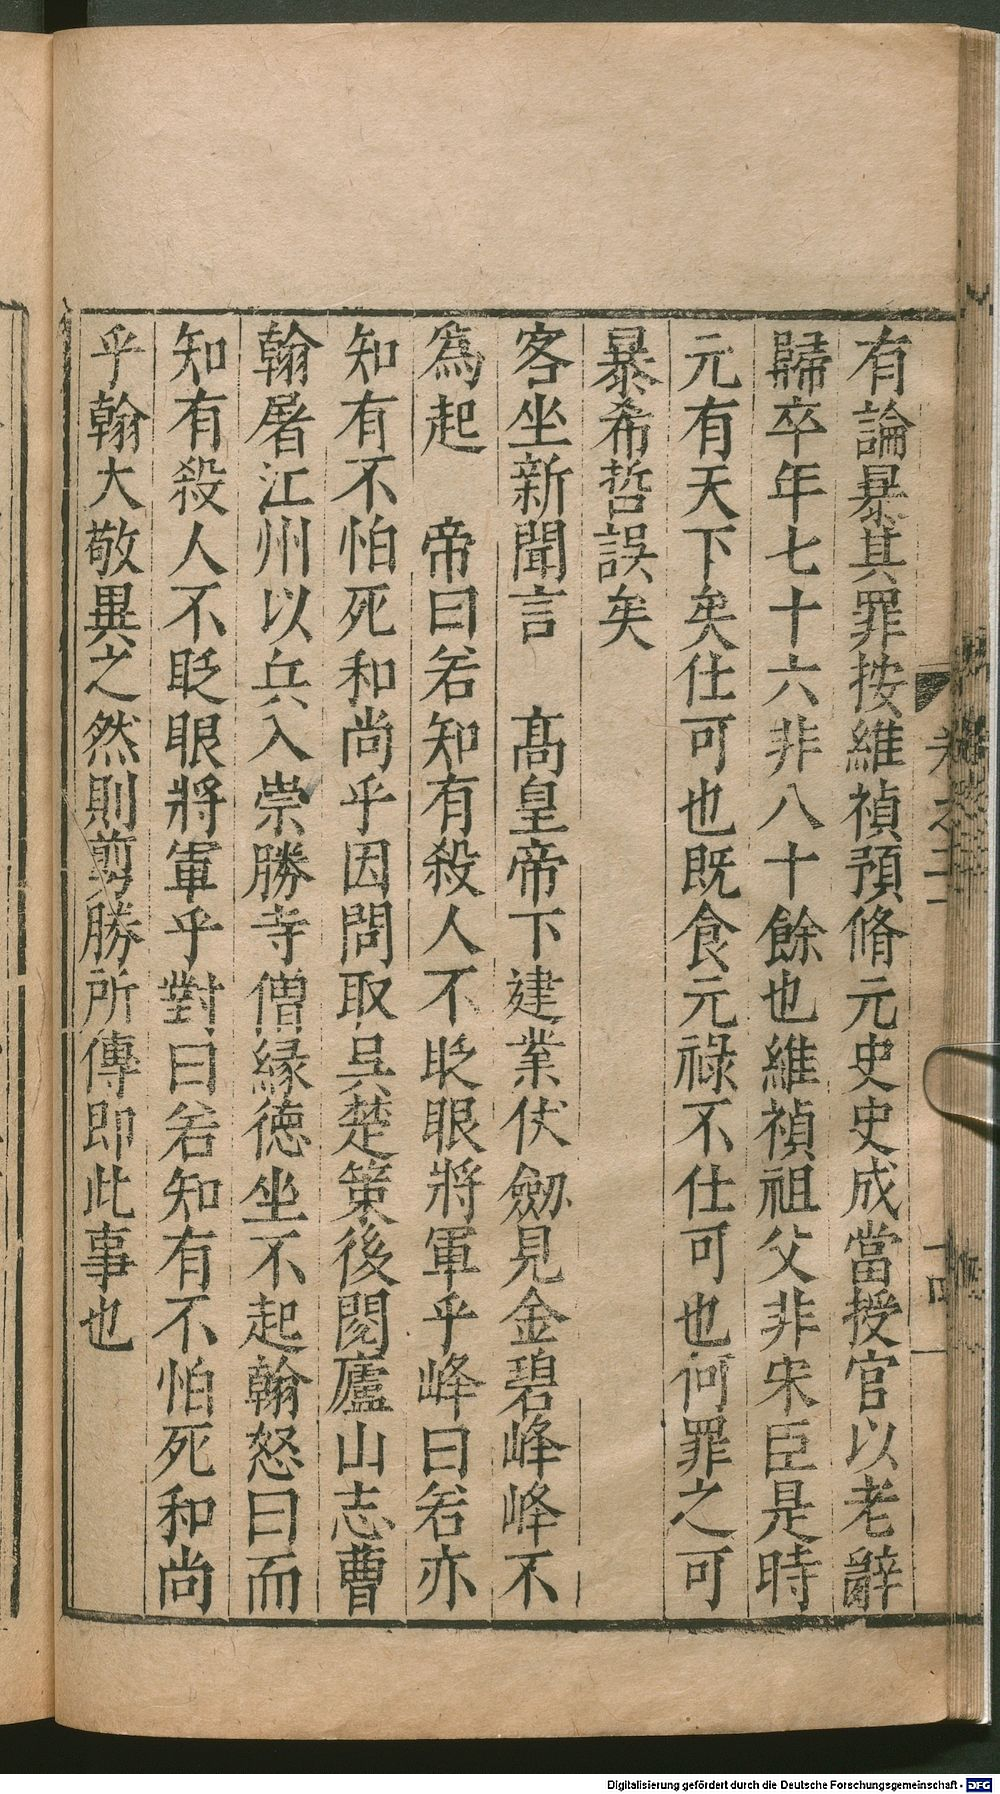 有論暴其罪按維禎預脩元史史成當授官以老辭
歸卒年七十六非八十餘也維禎祖父非宋臣是時
元有天下矣仕可也既食元祿不仕可也何罪之可
暴希哲誤矣
客坐新聞言　高皇帝下建業仗劒見金碧峰峰不
爲起　帝曰若知有殺人不眨眼將軍乎峰曰若亦
知有不怕死和尚乎因問取吳楚策後閱廬山志曹
翰屠江州以兵入崇勝寺僧緣德坐不起翰怒曰而
知有殺人不眨眼將軍乎對曰若知有不怕死和尚
乎翰大敬異之然則剪勝所傳即此事也
Digitalisierung gefördert durch die Deutsche Forschungsgemeinschaft - DFG